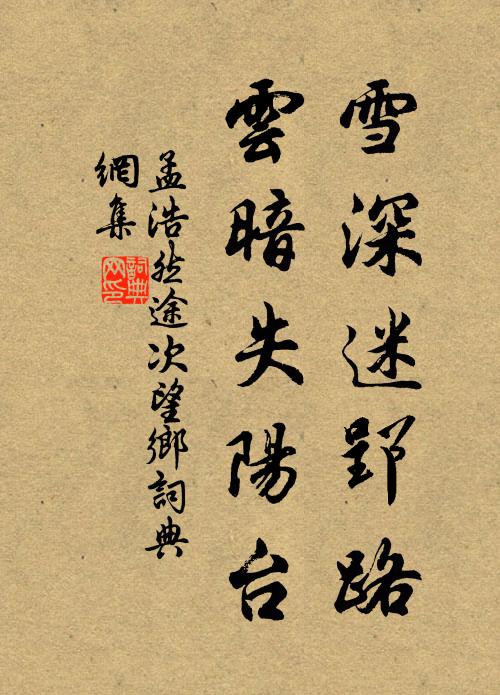 雪深迷郢路
雲暗失陽台
孟浩然途次望鄉詞典
網集
詞典網印